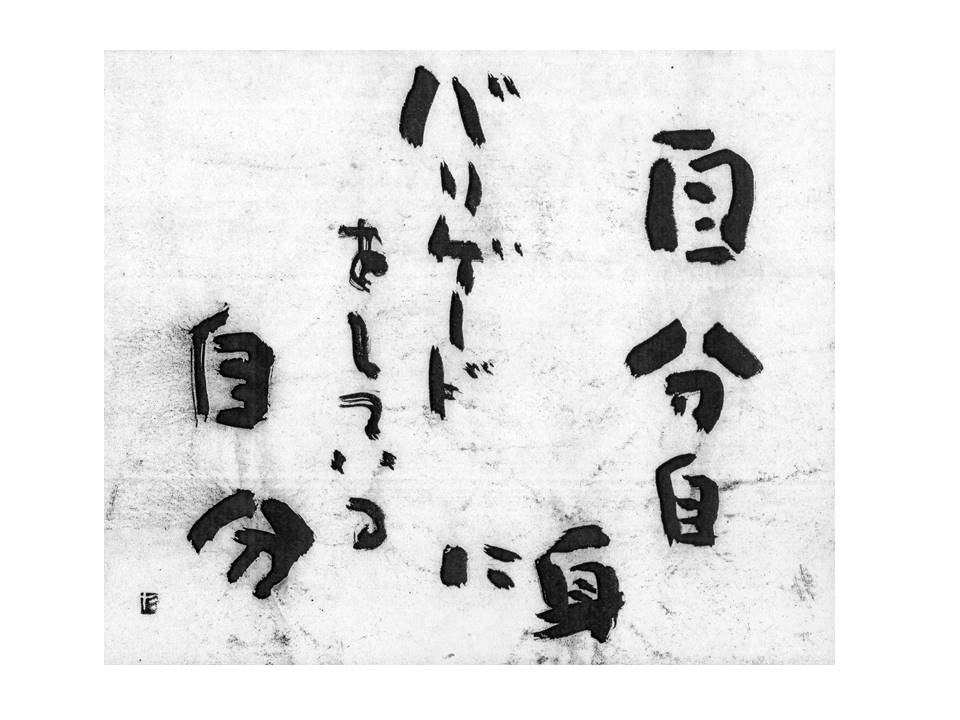 自分自身に
バリゲード
をしている
自分